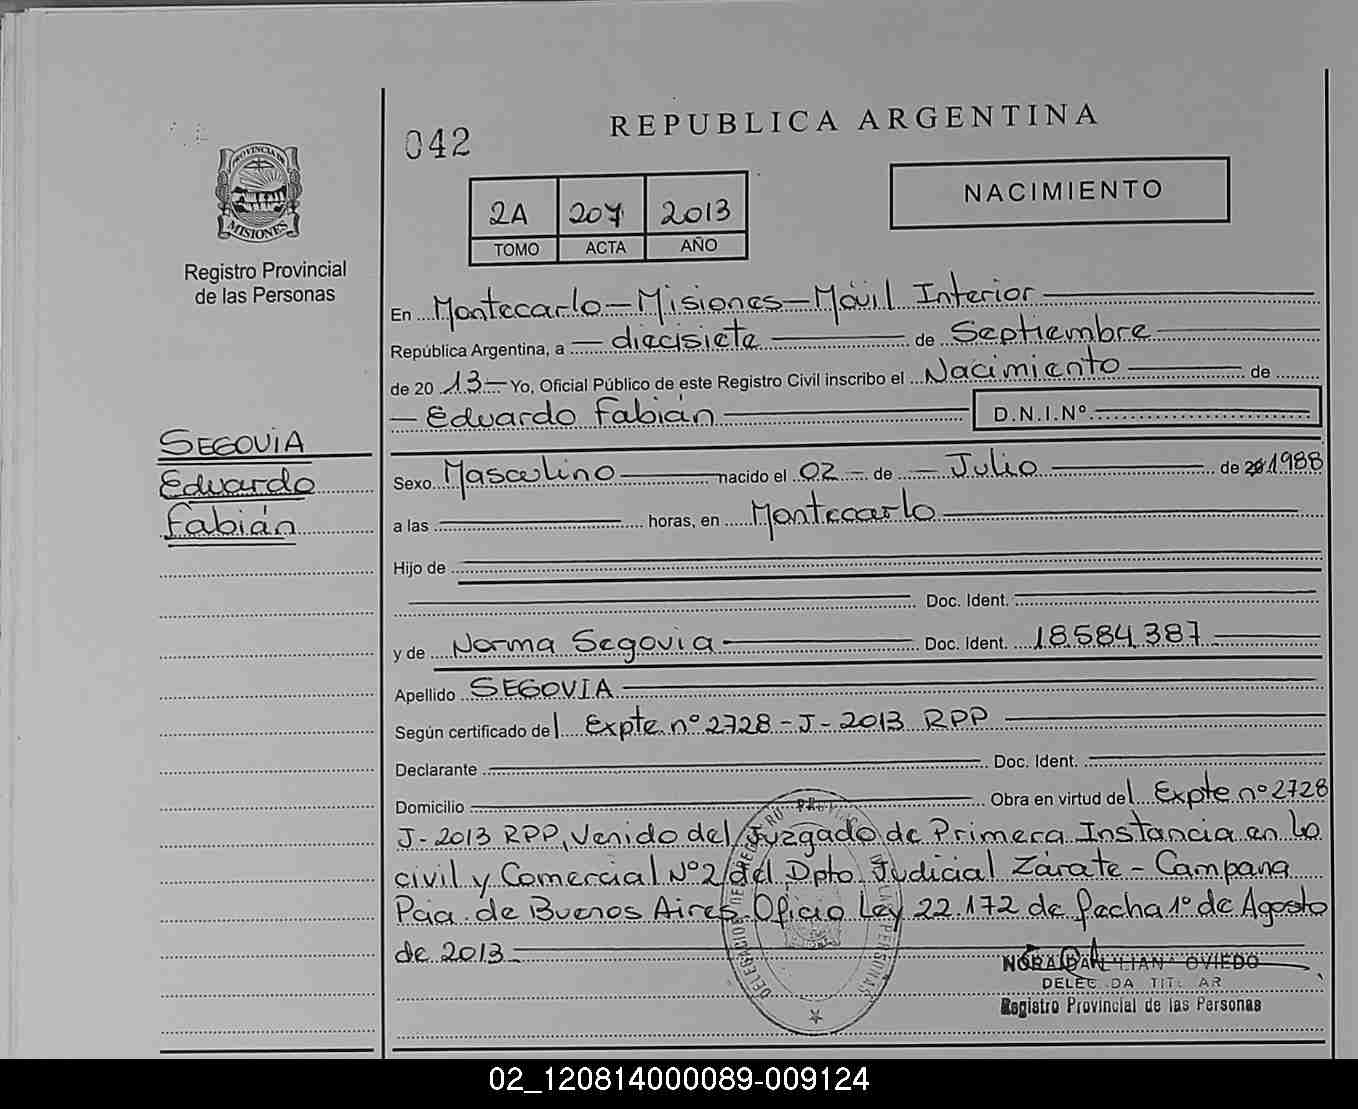 042
REPUBLICA ARGENTINA
PROVINCIA DE
MISIONES
Registro Provincial
de las Personas
2A 207 2013
TOMO ACTA AÑO
NACIMIENTO
En Montecarlo - Misiones - Móvil Interior
República Argentina, a diecisiete de Septiembre
de 20 13 Yo, Oficial Público de este Registro Civil inscribo el Nacimiento de
Eduardo Fabián D.N.I.Nº
SEGOVIA
Eduardo
Fabián
Sexo Masculino nacido el 02 de Julio de 1988
a las horas, en Montecarlo
Hijo de
Doc. Ident.
y de Norma Segovia Doc. Ident. 18.584.387
Apellido SEGOVIA
Según certificado del Expte nº 2728 - J - 2013 RPP
Declarante Doc. Ident.
Domicilio Obra en virtud del Expte nº 2728
J - 2013 RPP, Venido del Juzgado de Primera Instancia en lo
civil y Comercial Nº 2 del Dpto Judicial Zárate - Campana
Pcia. de Buenos Aires Oficio Ley 22.172 de fecha 1º de Agosto
de 2013
NORA OVIEDO
Registro Provincial de las Personas
02_120814000089-009124